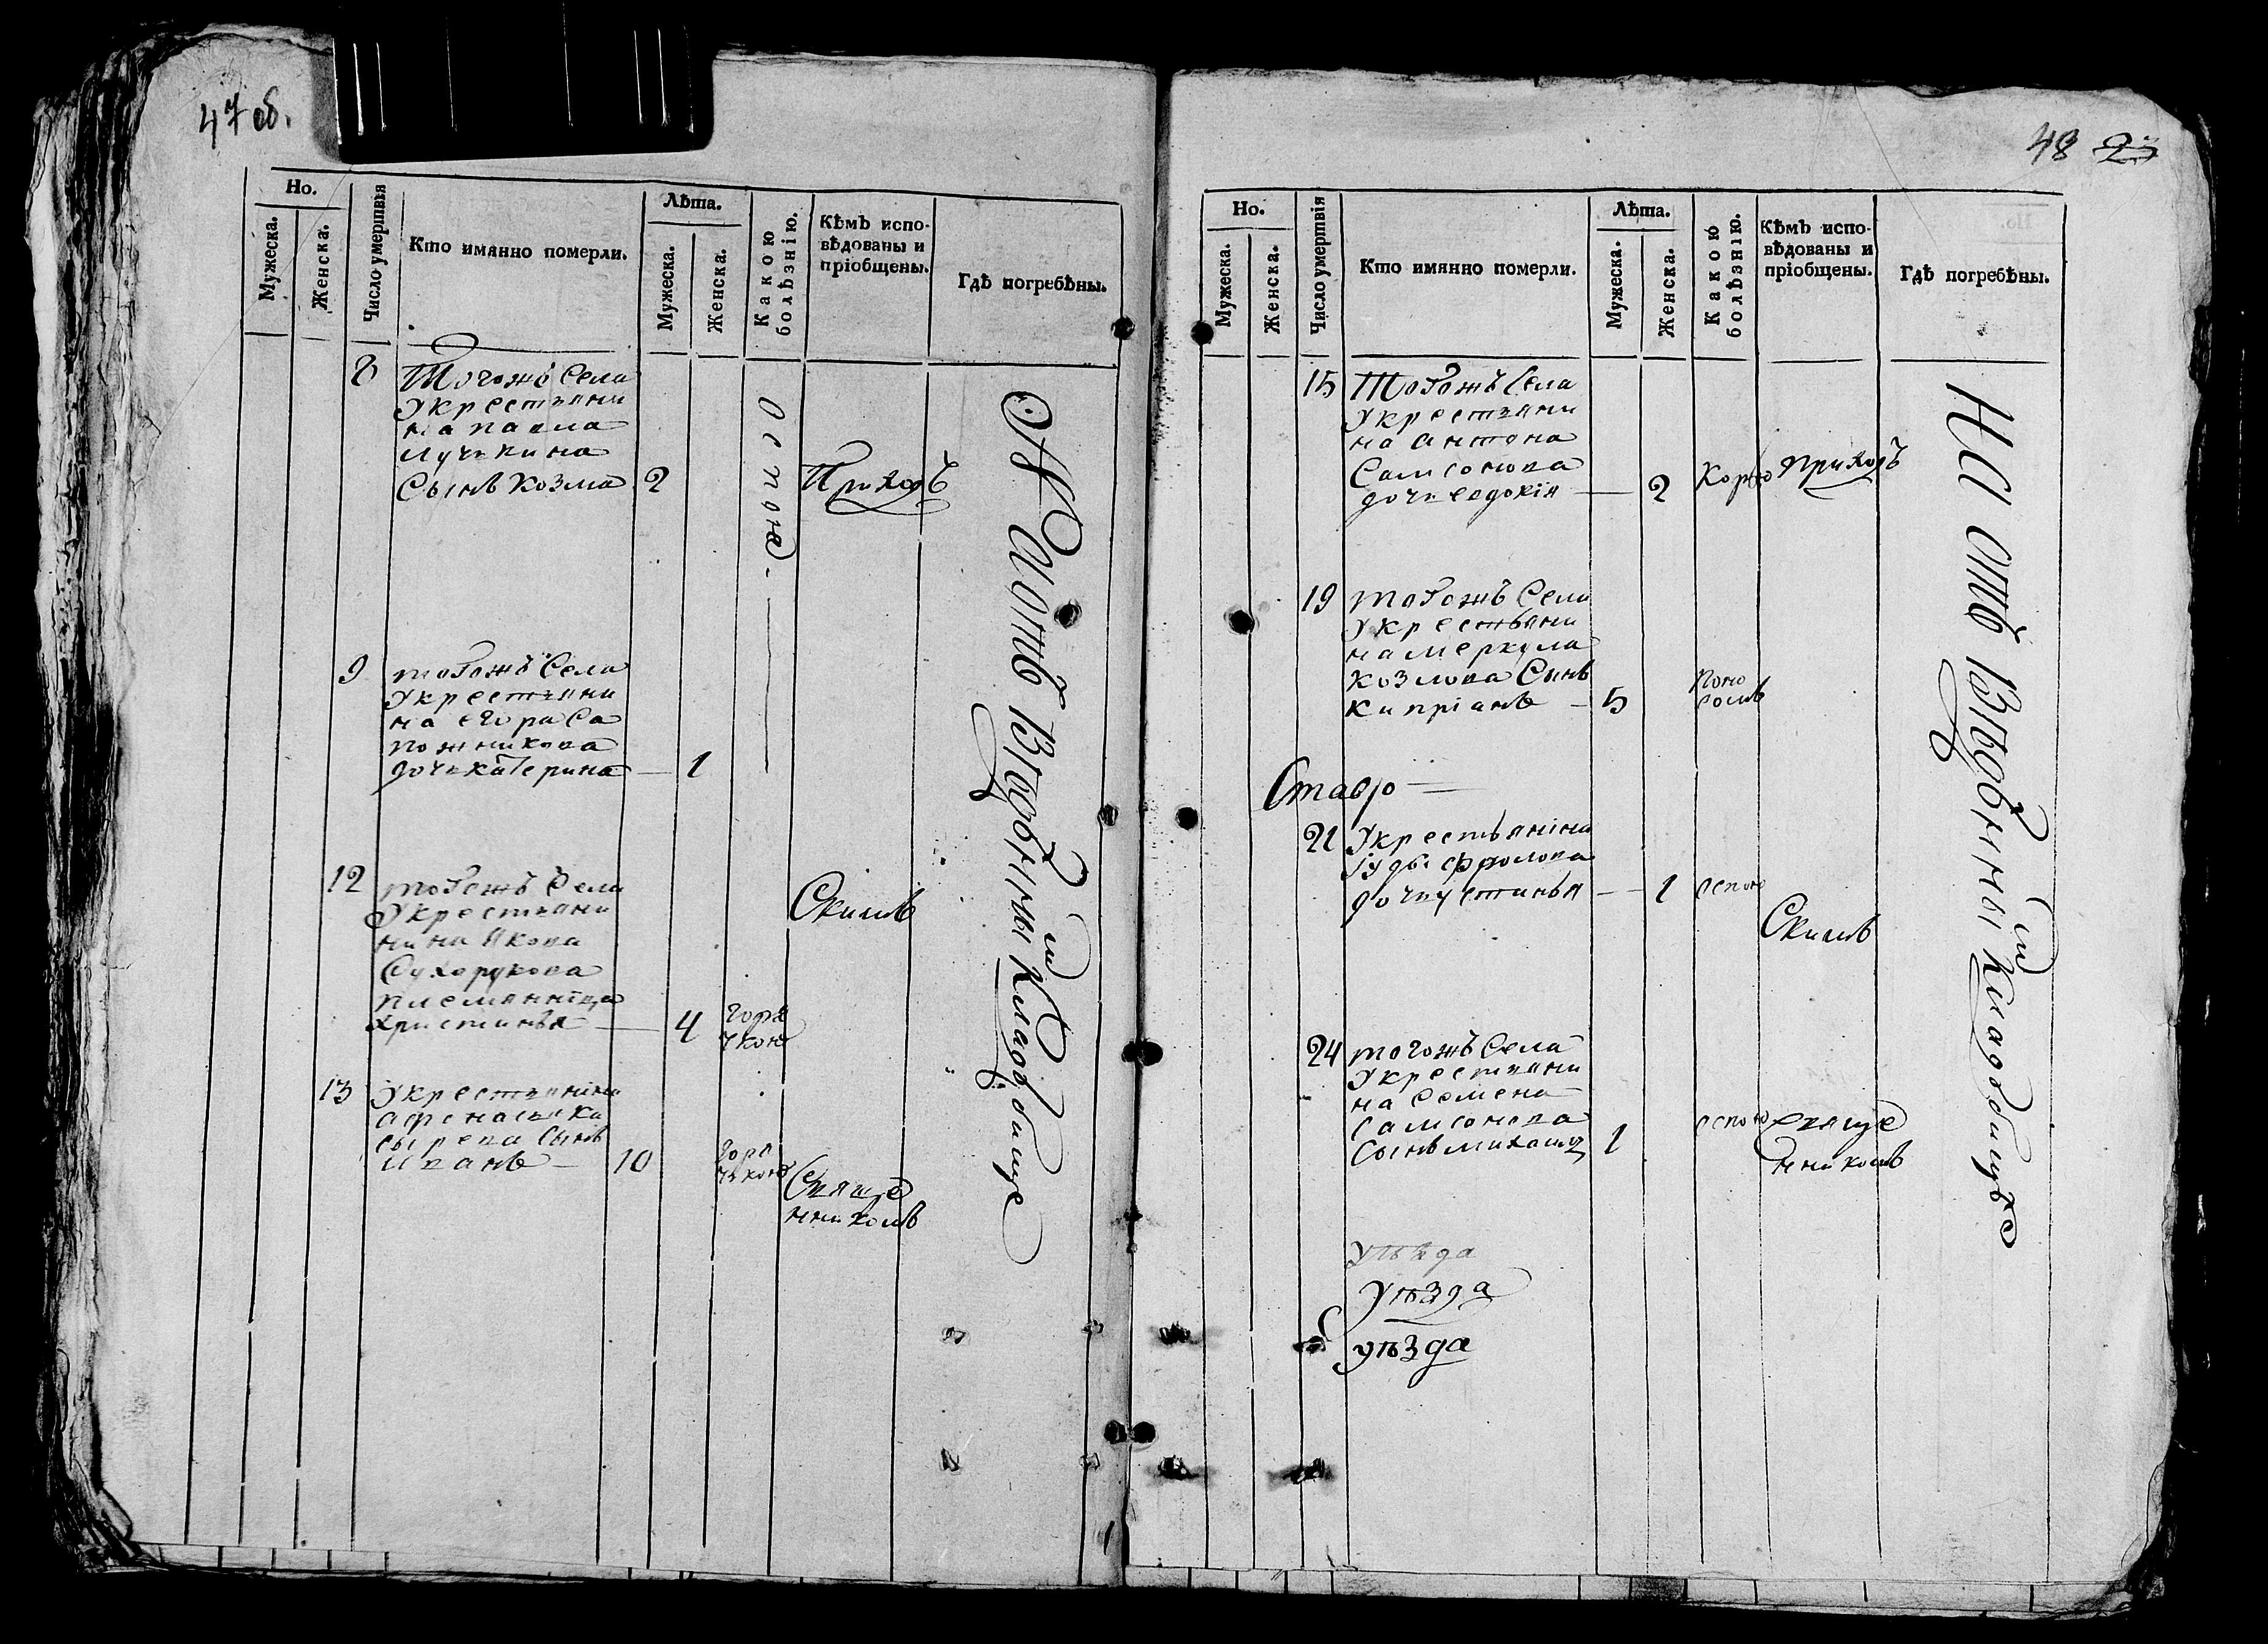 47 об.
Но.
Мужеска.
Женска.
Число умертвія
Кто имянно померли.
Лѣта.
Мужеска.
Женска.
Какою болѣзнію.
Кѣмъ испо-
вѣдованы и
пріобщены.
Гдѣ погребѣны.
8
Тогожъ Села
Укрестьяни
на павла
лучкина
Сынъ Козма 2
Оспою
Приход
9
тогожъ Села
Укрестьяни
на егора Са
пожникова
дочь катерина 1
12
тогожъ Села
Укрестьяни
нина Якова
Сухорукова
племянница
христинья 4
горя
чкою
Скимъ
13
Укрестьянина
афонасья
Сырева Сынъ
Иванъ 10
горя
чкою
Свяще
нникомъ
На отведенномъ Кладбище
48 23
Но.
Мужеска.
Женска.
Число умертвія
Кто имянно померли.
Лѣта.
Мужеска.
Женска.
Какою болѣзнію.
Кѣмъ испо-
вѣдованы и
пріобщены.
Гдѣ погребѣны.
15
Тогожъ Села
Укрестьяни
на антона
Самсонова
дочь евдокія 2
Корью
приход
19
тогожъ Села
Укрестьяни
на меркула
козлова Сынъ
Кипріанъ 5
Поно
сомъ
Ставро
21
Укрестьянина
Іуды фролова
дочь устинья 1
оспою
Скимъ
24
тогожъ Села
Укрестьяни
на Семена
Самсонова
Сынъ михаилъ 1
оспою
свяще
нникомъ
уѣзда
Уѣзда
уѣзда
На отведенномъ Кладбище